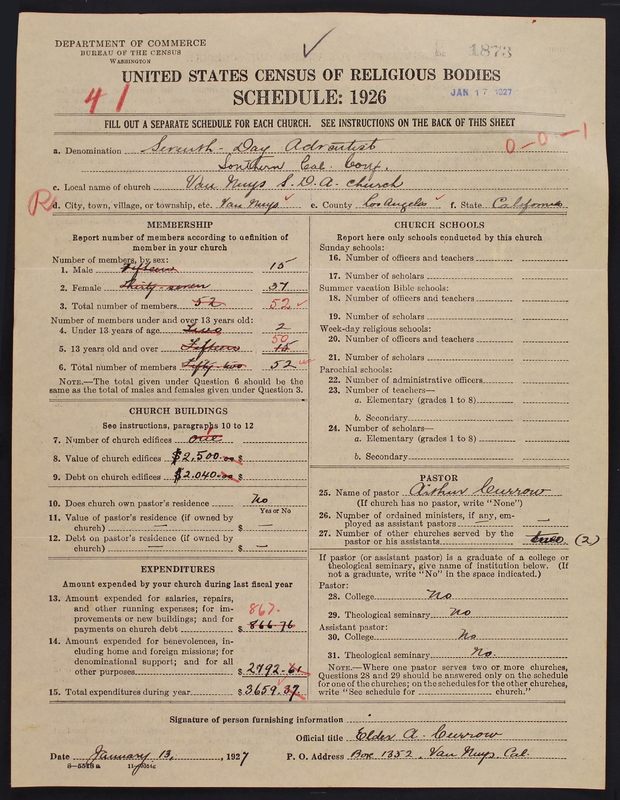 DEPARTMENT OF COMMERCE
BUREAU OF THE CENSUS
WASHINGTON
1873
UNITED STATES CENSUS OF RELIGIOUS BODIES
SCHEDULE: 1926
JAN 17 1927
41
FILL OUT A SEPARATE SCHEDULE FOR EACH CHURCH. SEE INSTRUCTIONS ON THE BACK OF THIS SHEET
a. Denomination Seventh-Day Adventist
0-0-1
Southern Cal. Conf.
c. Local name of church Van Nuys S.D.A. church
d. City, town, village, or township, etc. Van Nuys e. County Los Angeles f. State California
MEMBERSHIP
Report number of members according to definition of
member in your church
Number of members, by sex:
1. Male Fifteen 15
2. Female Thirty-seven 37
3. Total number of members 52 52
Number of members under and over 13 years old:
4. Under 13 years of age Two 2
50
5. 13 years old and over Fifteen 15
6. Total number of members Fifty-two 52
NOTE.—The total given under Question 6 should be the
same as the total of males and females given under Question 3.
CHURCH BUILDINGS
See instructions, paragraphs 10 to 12
7. Number of church edifices one 1
8. Value of church edifices $2,500.00 $
9. Debt on church edifices $2.040.00 $
10. Does church own pastor's residence No
Yes or No
11. Value of pastor's residence (if owned by
church) — $ —
12. Debt on pastor's residence (if owned by
church) — $ —
EXPENDITURES
Amount expended by your church during last fiscal year
13. Amount expended for salaries, repairs,
and other running expenses; for im-
provements or new buildings; and for
867.
payments on church debt $ 866.76
14. Amount expended for benevolences, in-
cluding home and foreign missions; for
denominational support; and for all
other purposes $ 2792.61
15. Total expenditures during year $ 3659.37
CHURCH SCHOOLS
Report here only schools conducted by this church
Sunday schools:
16. Number of officers and teachers
17. Number of scholars
Summer vacation Bible schools:
18. Number of officers and teachers
19. Number of scholars
Week-day religious schools:
20. Number of officers and teachers
21. Number of scholars
Parochial schools:
22. Number of administrative officers
23. Number of teachers—
a. Elementary (grades 1 to 8)
b. Secondary
24. Number of scholars—
a. Elementary (grades 1 to 8)
b. Secondary
PASTOR
25. Name of pastor Arthur Currow
(If church has no pastor, write "None")
26. Number of ordained ministers, if any, em-
ployed as assistant pastors — —
27. Number of other churches served by the
pastor or his assistants two (2)
If pastor (or assistant pastor) is a graduate of a college or
theological seminary, give name of institution below. (If
not a graduate, write "No" in the space indicated.)
Pastor:
28. College No
29. Theological seminary No
Assistant pastor:
30. College No
31. Theological seminary No.
NOTE.—Where one pastor serves two or more churches,
Questions 28 and 29 should be answered only on the schedule
for one of the churches; on the schedules for the other churches,
write "See schedule for church."
Signature of person furnishing information
Official title Elder A. Currow
Date January 13, 1927 P. O. Address Box 1352, Van Nuys, Cal.
8—5518a